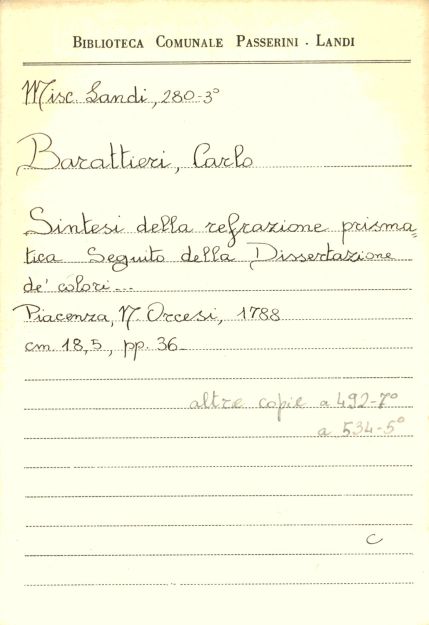 BIBLIOTECA COMUNALE PASSERINI - LANDI
Misc. Landi, 280-3°
Barattieri, Carlo
Sintesi della refrazione prisma=
tica Seguito della Dissertazione
de' colori...
Piacenza, N. Orcesi, 1788
cm. 18,5, pp. 36
altre copie a 492-7°
a 534-5°
C